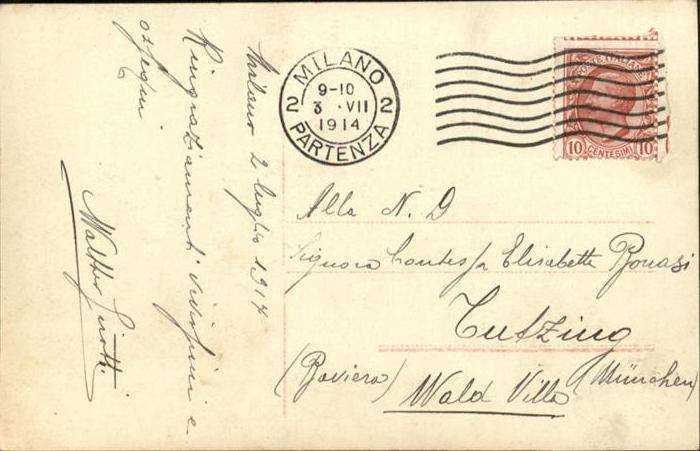 Milano 2 luglio 1914
Ringraziamenti vivissimi e
ossequi
MILANO
9-10
2 3 · VII 2
1914
PARTENZA
POSTE ITALIANE
10 CENTESIMI 10
Alla N. D
Signora Contessa Elisabetta Bonasi
Tutzing
(Baviera) (München)
Wald Villa